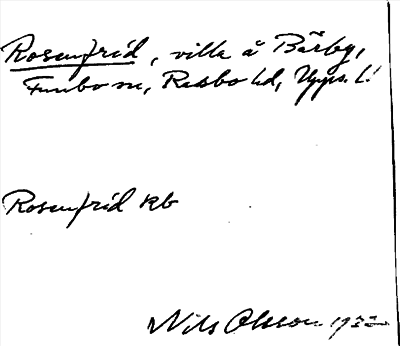 Rosenfrid, villa å Bärby,
Funbo sn, Rasbo hd, Upps. l.
Rosenfrid kb
Nils Olsson